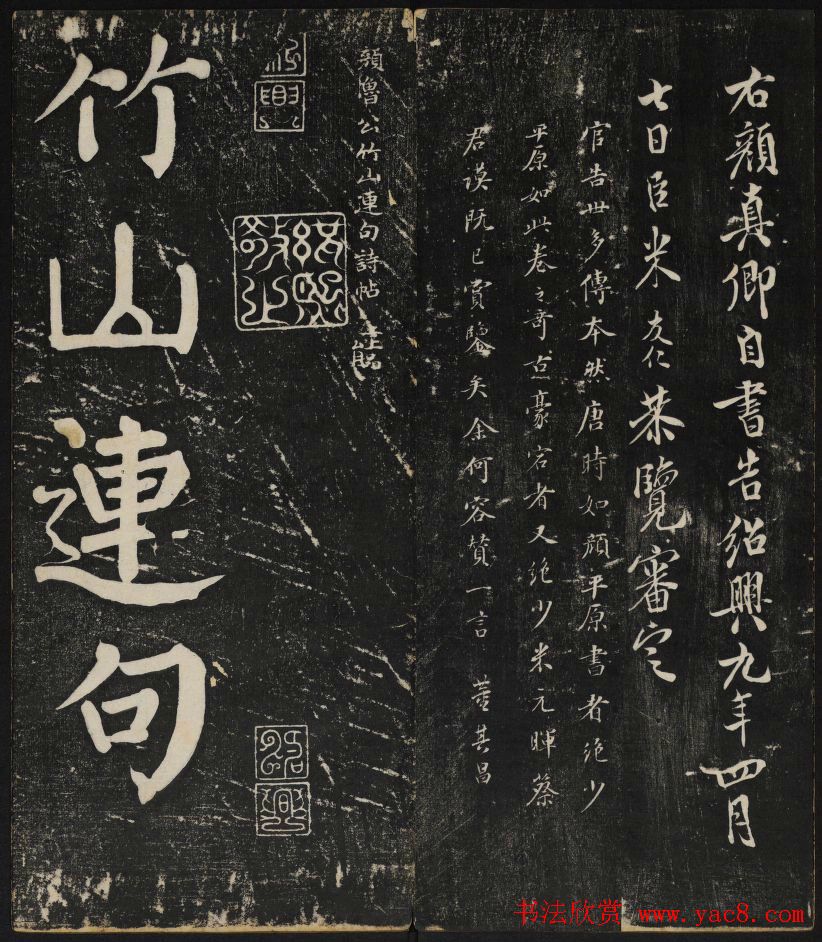 右顏真卿自書告紹興九年四月
七日臣米友仁恭覽審定
官告世多傳本然唐時如顏平原書者絕少
平原如此卷之奇古豪宕者又絕少米元暉蔡
君謨既已賞鑒矣余何容贊一言 董其昌
顏魯公竹山連句詩帖
紹興
竹山連句
紹興
书法欣赏 www.yac8.com